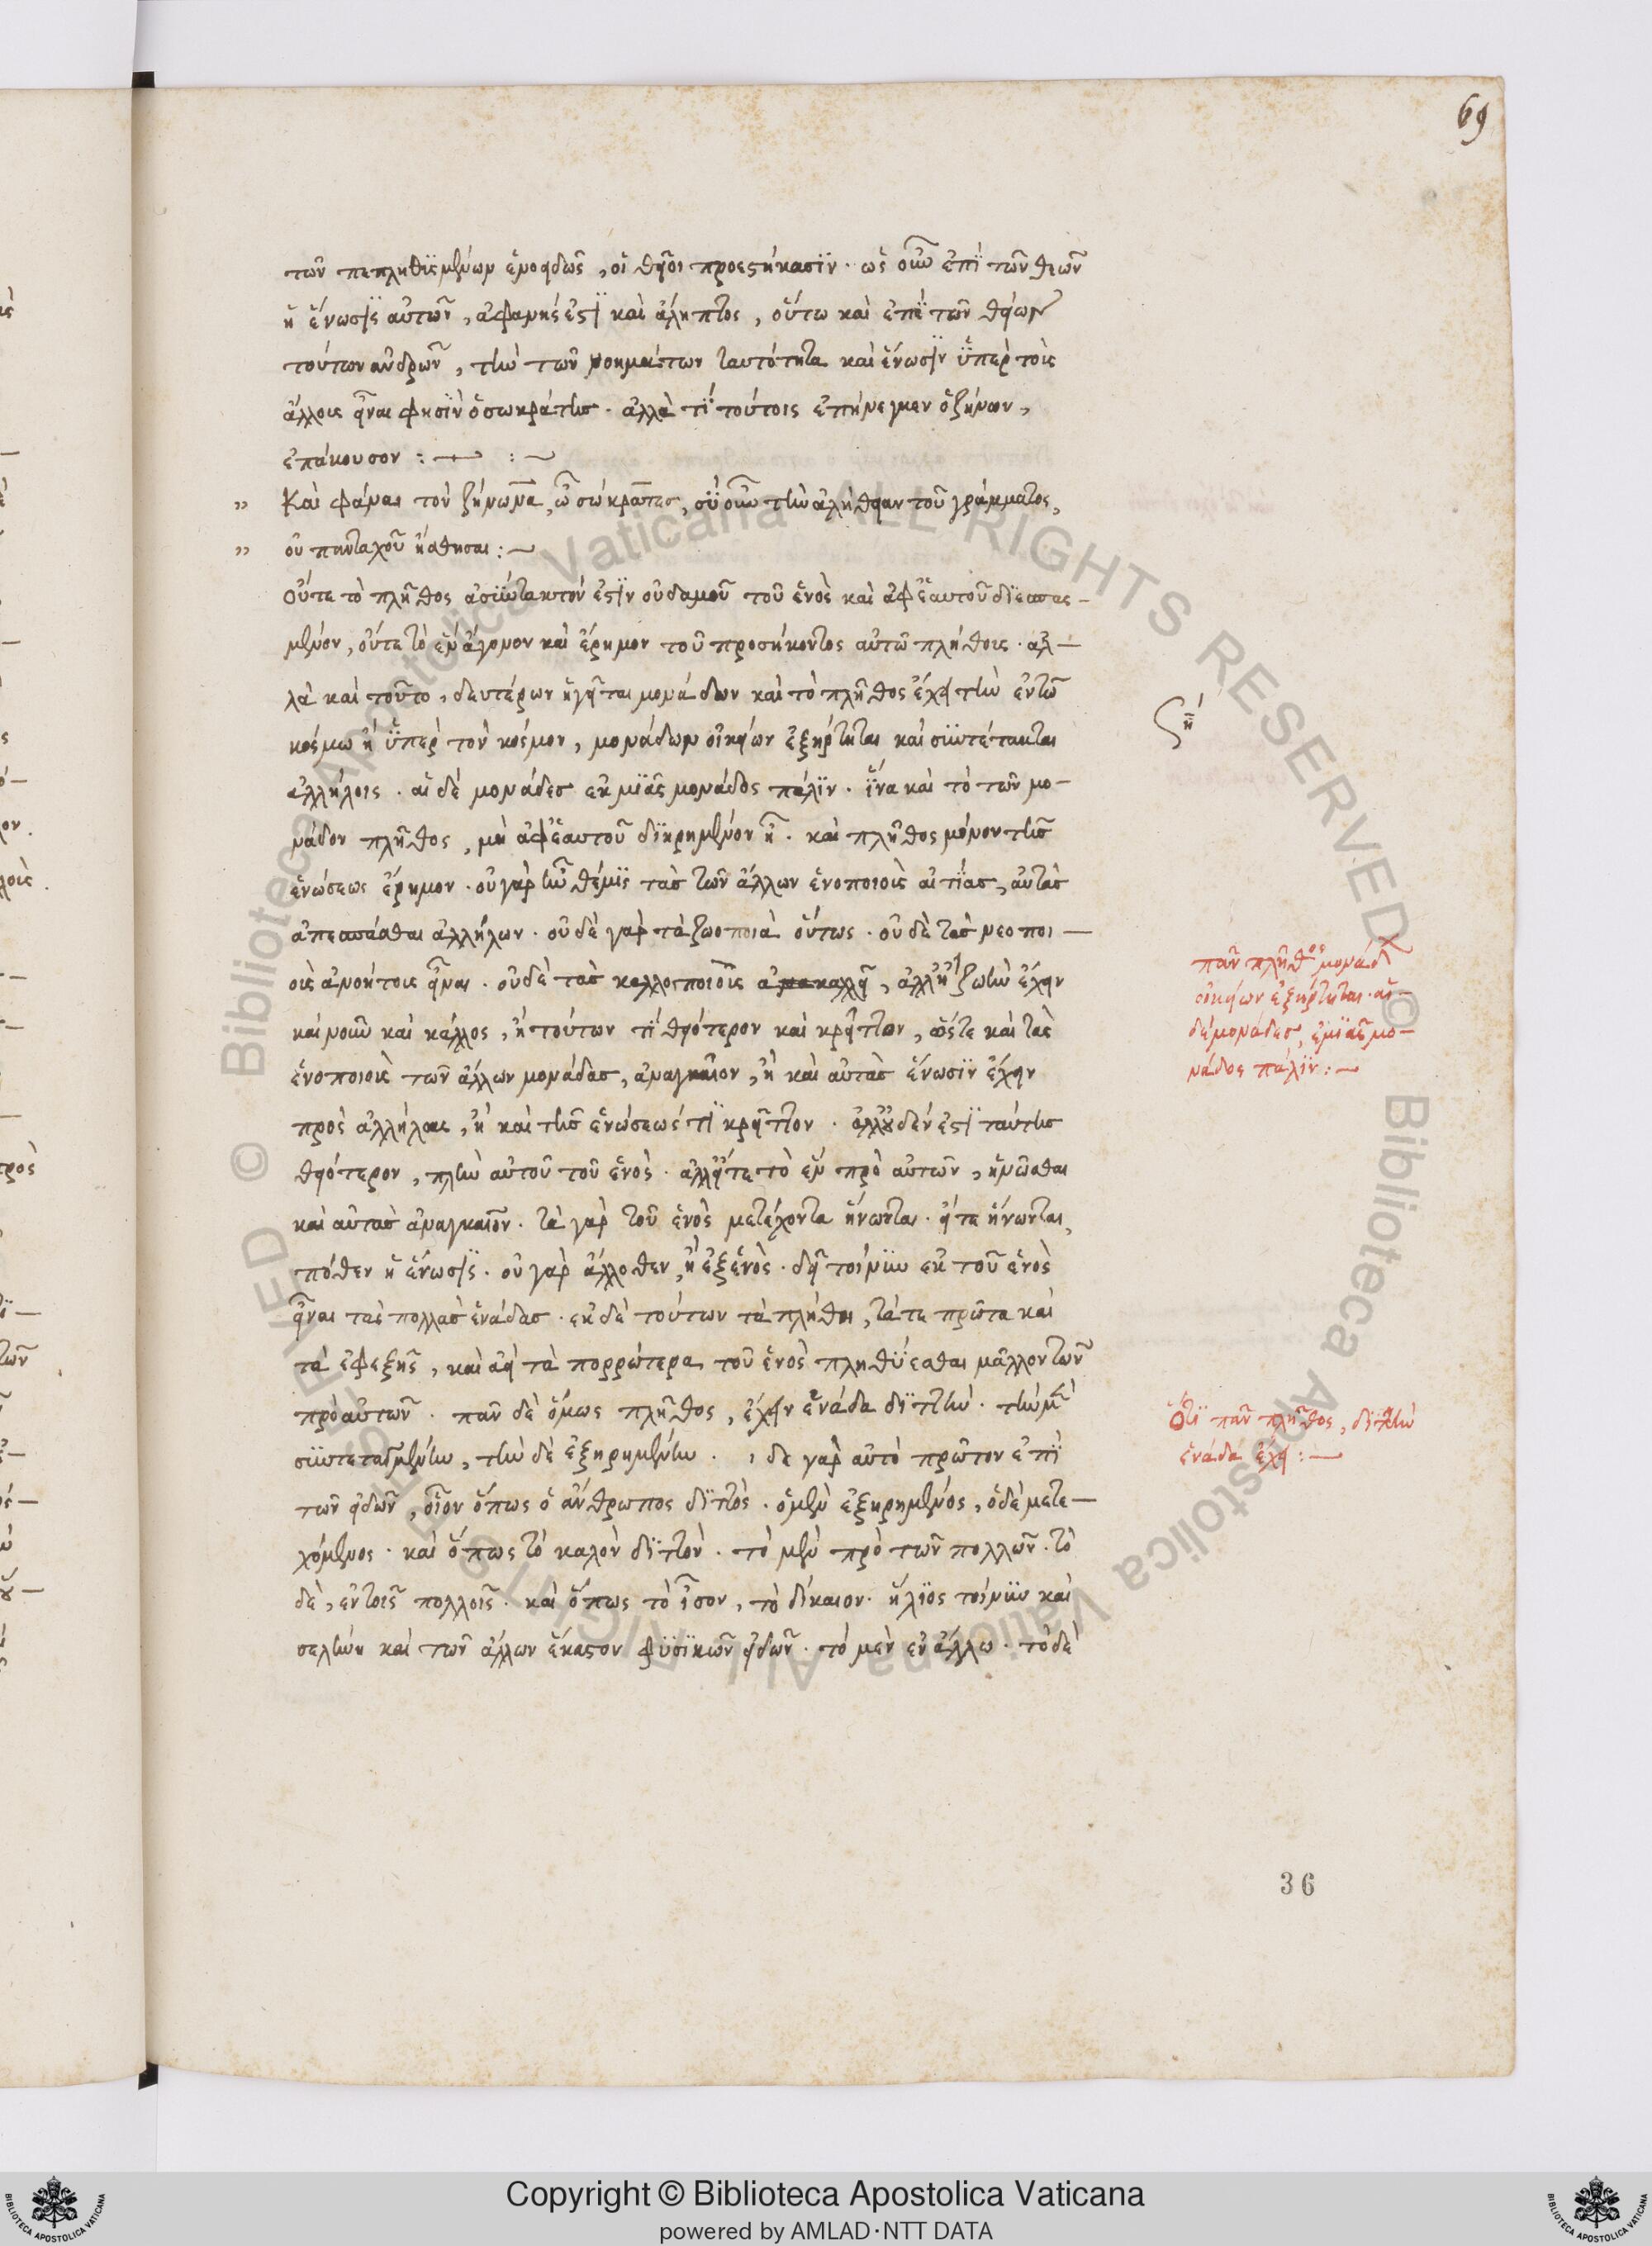 69
τῶν πεπληθυσμένων ἑνοειδῶς, οἱ θεῖοι προεστήκασιν. ὡς οὖν ἐπὶ τῶν θεῶν
ἡ ἕνωσις αὐτῶν, ἀφανής ἐστι καὶ ἄληπτος, οὕτω καὶ ἐπὶ τῶν θείων
τούτων ἀνδρῶν, τὴν τῶν νοημάτων ταυτότητα καὶ ἕνωσιν ὑπὲρ τοὺς
ἄλλους εἶναι φησὶν ὁ σωκράτης. ἀλλὰ τί τούτοις ἐπήνεγκεν ὁ ζήνων,
ἐπάκουσον :— :~
" Καὶ φάναι τὸν ζήνωνα, ὦ σώκρατες, σὺ οὖν τὴν ἀλήθειαν τοῦ γράμματος,
" οὐ πανταχοῦ ἤσθησαι :~
Οὔτε τὸ πλῆθος ἀσύντακτόν ἐστιν οὐδαμοῦ τοῦ ἑνὸς καὶ ἀφ' ἑαυτοῦ διεσπασ—
μένον, οὔτε τὸ ἓν ἄγονον καὶ ἔρημον τοῦ προσήκοντος αὐτῶ πλήθους. ἀλ—
λὰ καὶ τοῦτο, δευτέρων ἡγεῖται μονάδων καὶ τὸ πλῆθος ἔχει τὴν ἐν τῶ
κόσμω ἢ ὑπὲρ τὸν κόσμον, μονάδων οἰκείων ἐξήρτηται καὶ συντέτακται
ἀλλήλοις. αἱ δὲ μονάδες ἐκ μιᾶς μονάδος πάλιν. ἵνα καὶ τὸ τῶν μο—
νάδον πλῆθος, μὴ ἀφ' ἑαυτοῦ διηρημένον ἦ. καὶ πλῆθος μόνον τῆς
ἑνώσεως ἔρημον. οὐ γὰρ ἦν θέμις τὰς τῶν ἄλλων ἑνοποιοὺς αἰτίας, αὐτὰς
ἀπεσπάσθαι ἀλλήλων. οὐδὲ γὰρ τὰ ζωοποιὰ οὕτως. οὐδὲ τὰς νεοποι—
οὺς ἀνοήτους εἶναι. οὐδὲ τὰς καλλοποιοὺς ἀκαλλεῖ, ἀλλ' ἢ ζωὴν ἔχειν
καὶ νοῦν καὶ κάλλος, ἢ τούτων τί θειότερον καὶ κρεῖττον, ὥστε καὶ τὰς
ἑνοποιοὺς τῶν ἄλλων μονάδας, ἀναγκαῖον, ἢ καὶ αὐτὰς ἕνωσιν ἔχειν
πρὸς ἀλλήλας, ἢ καὶ τῆς ἑνώσεώς τι κρεῖττον. ἀλλ' οὐδέν ἐστι ταύτης
θειότερον, πλὴν αὐτοῦ τοῦ ἑνός. ἀλλ' εἴτε τὸ ἓν πρὸ αὐτῶν, ἡνῶσθαι
καὶ αὐτὰς ἀναγκαῖον. τὰ γὰρ τοῦ ἑνὸς μετέχοντα ἥνωται. εἴτε ἥνωται,
πόθεν ἡ ἕνωσις. οὐ γὰρ ἄλλοθεν, ἢ ἐξ ἑνός. δεῖ τοίνυν ἐκ τοῦ ἑνὸς
εἶναι τὰς πολλὰς ἑνάδας. ἐκ δὲ τούτων τὰ πλήθη, τά τε πρῶτα καὶ
τὰ ἐφεξῆς, καὶ ἀεὶ τὰ πορρώτερα τοῦ ἑνὸς πληθύεσθαι μᾶλλον τῶν
πρὸ αὐτῶν. πᾶν δὲ ὅμως πλῆθος, ἔχειν ἑνάδα διττήν. τὴν μὲν
συντεταγμένην, τὴν δὲ ἐξηρημένην. ἰδὲ γὰρ αὐτὸ πρῶτον ἐπὶ
τῶν εἰδῶν, οἷον ὅπως ὁ ἄνθρωπος διττός. ὁ μὲν ἐξηρημένος, ὁ δὲ μετε—
χόμενος. καὶ ὅπως τὸ καλὸν διττόν. τὸ μὲν πρὸ τῶν πολλῶν. τὸ
δὲ, ἐν τοῖς πολλοῖς. καὶ ὅπως τὸ ἴσον, τὸ δίκαιον. ἥλιος τοίνυν καὶ
σελήνη καὶ τῶν ἄλλων ἕκαστον φυσικῶν εἰδῶν. τὸ μὲν ἐν ἄλλω. τὸ δὲ
πᾶν πλῆθος μονάδ
οἰκείων ἐξήρτηται. αἱ—
δὲ μονάδες, ἐκ μιᾶς μο—
νάδος πάλιν :~
Ὅτι πᾶν πλῆθος, διττὴν
ἑνάδα ἔχει :~
36
Copyright © Biblioteca Apostolica Vaticana
powered by AMLAD·NTT DATA